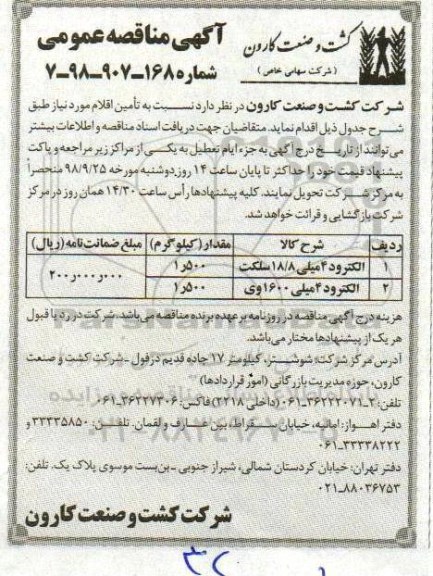 کشت و صنعت کارون
( شرکت سهامی خاص )
آگهی مناقصه عمومی
شماره ۱۶۸-۹۰۷-۹۸-۷
شرکت کشت و صنعت کارون در نظر دارد نسبت به تأمین اقلام مورد نیاز طبق
شرح جدول ذیل اقدام نماید. متقاضیان جهت دریافت اسناد مناقصه و اطلاعات بیشتر
می‌توانند از تاریخ درج آگهی به جزء ایام تعطیل به یکی از مراکز زیر مراجعه و پاکت
پیشنهاد قیمت خود را حداکثر تا پایان ساعت ۱۴ روز دوشنبه مورخه ۹۸/۹/۲۵ منحصراً
به مرکز شرکت تحویل نمایند. کلیه پیشنهادها رأس ساعت ۱۴/۳۰ همان روز در مرکز
شرکت بازگشایی و قرائت خواهد شد.
ردیف شرح کالا مقدار (کیلوگرم) مبلغ ضمانت‌نامه (ریال)
۱ الکترود ۴ میلی ۱۸/۸ سلکت ۱٫۵۰۰ ۲۰۰٫۰۰۰٫۰۰۰
۲ الکترود ۴ میلی ۱۶۰۰ وی ۱٫۵۰۰
هزینه درج آگهی مناقصه در روزنامه بر عهده برنده مناقصه می‌باشد. شرکت در رد یا قبول
هر یک از پیشنهادها مختار می‌باشد.
آدرس مرکز شرکت: شوشتر، کیلومتر ۱۷ جاده قدیم دزفول - شرکت کشت و صنعت
کارون، حوزه مدیریت بازرگانی (امور قراردادها)
تلفن: ۲-۳۶۲۲۲۰۷۱-۰۶۱ (داخلی ۲۲۱۸) فاکس: ۳۶۲۲۷۷۰۶-۰۶۱
دفتر اهواز: امانیه، خیابان سقراط، بین عارف و لقمان. تلفن: ۳۳۳۳۵۸۵۰ و
۳۳۳۳۸۲۲۲-۰۶۱
دفتر تهران: خیابان کردستان شمالی، شیراز جنوبی - بن‌بست موسوی پلاک یک. تلفن:
۸۸۰۳۶۷۵۳-۰۲۱
شرکت کشت و صنعت کارون